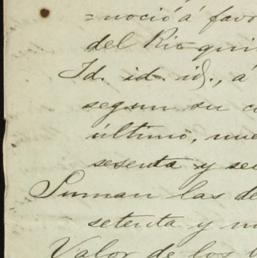 =noció á favo
del Rio qui
Id. id. id., á
segun su c
último, nue
sesenta y se
Suman las de
setenta y nu
Valor de los